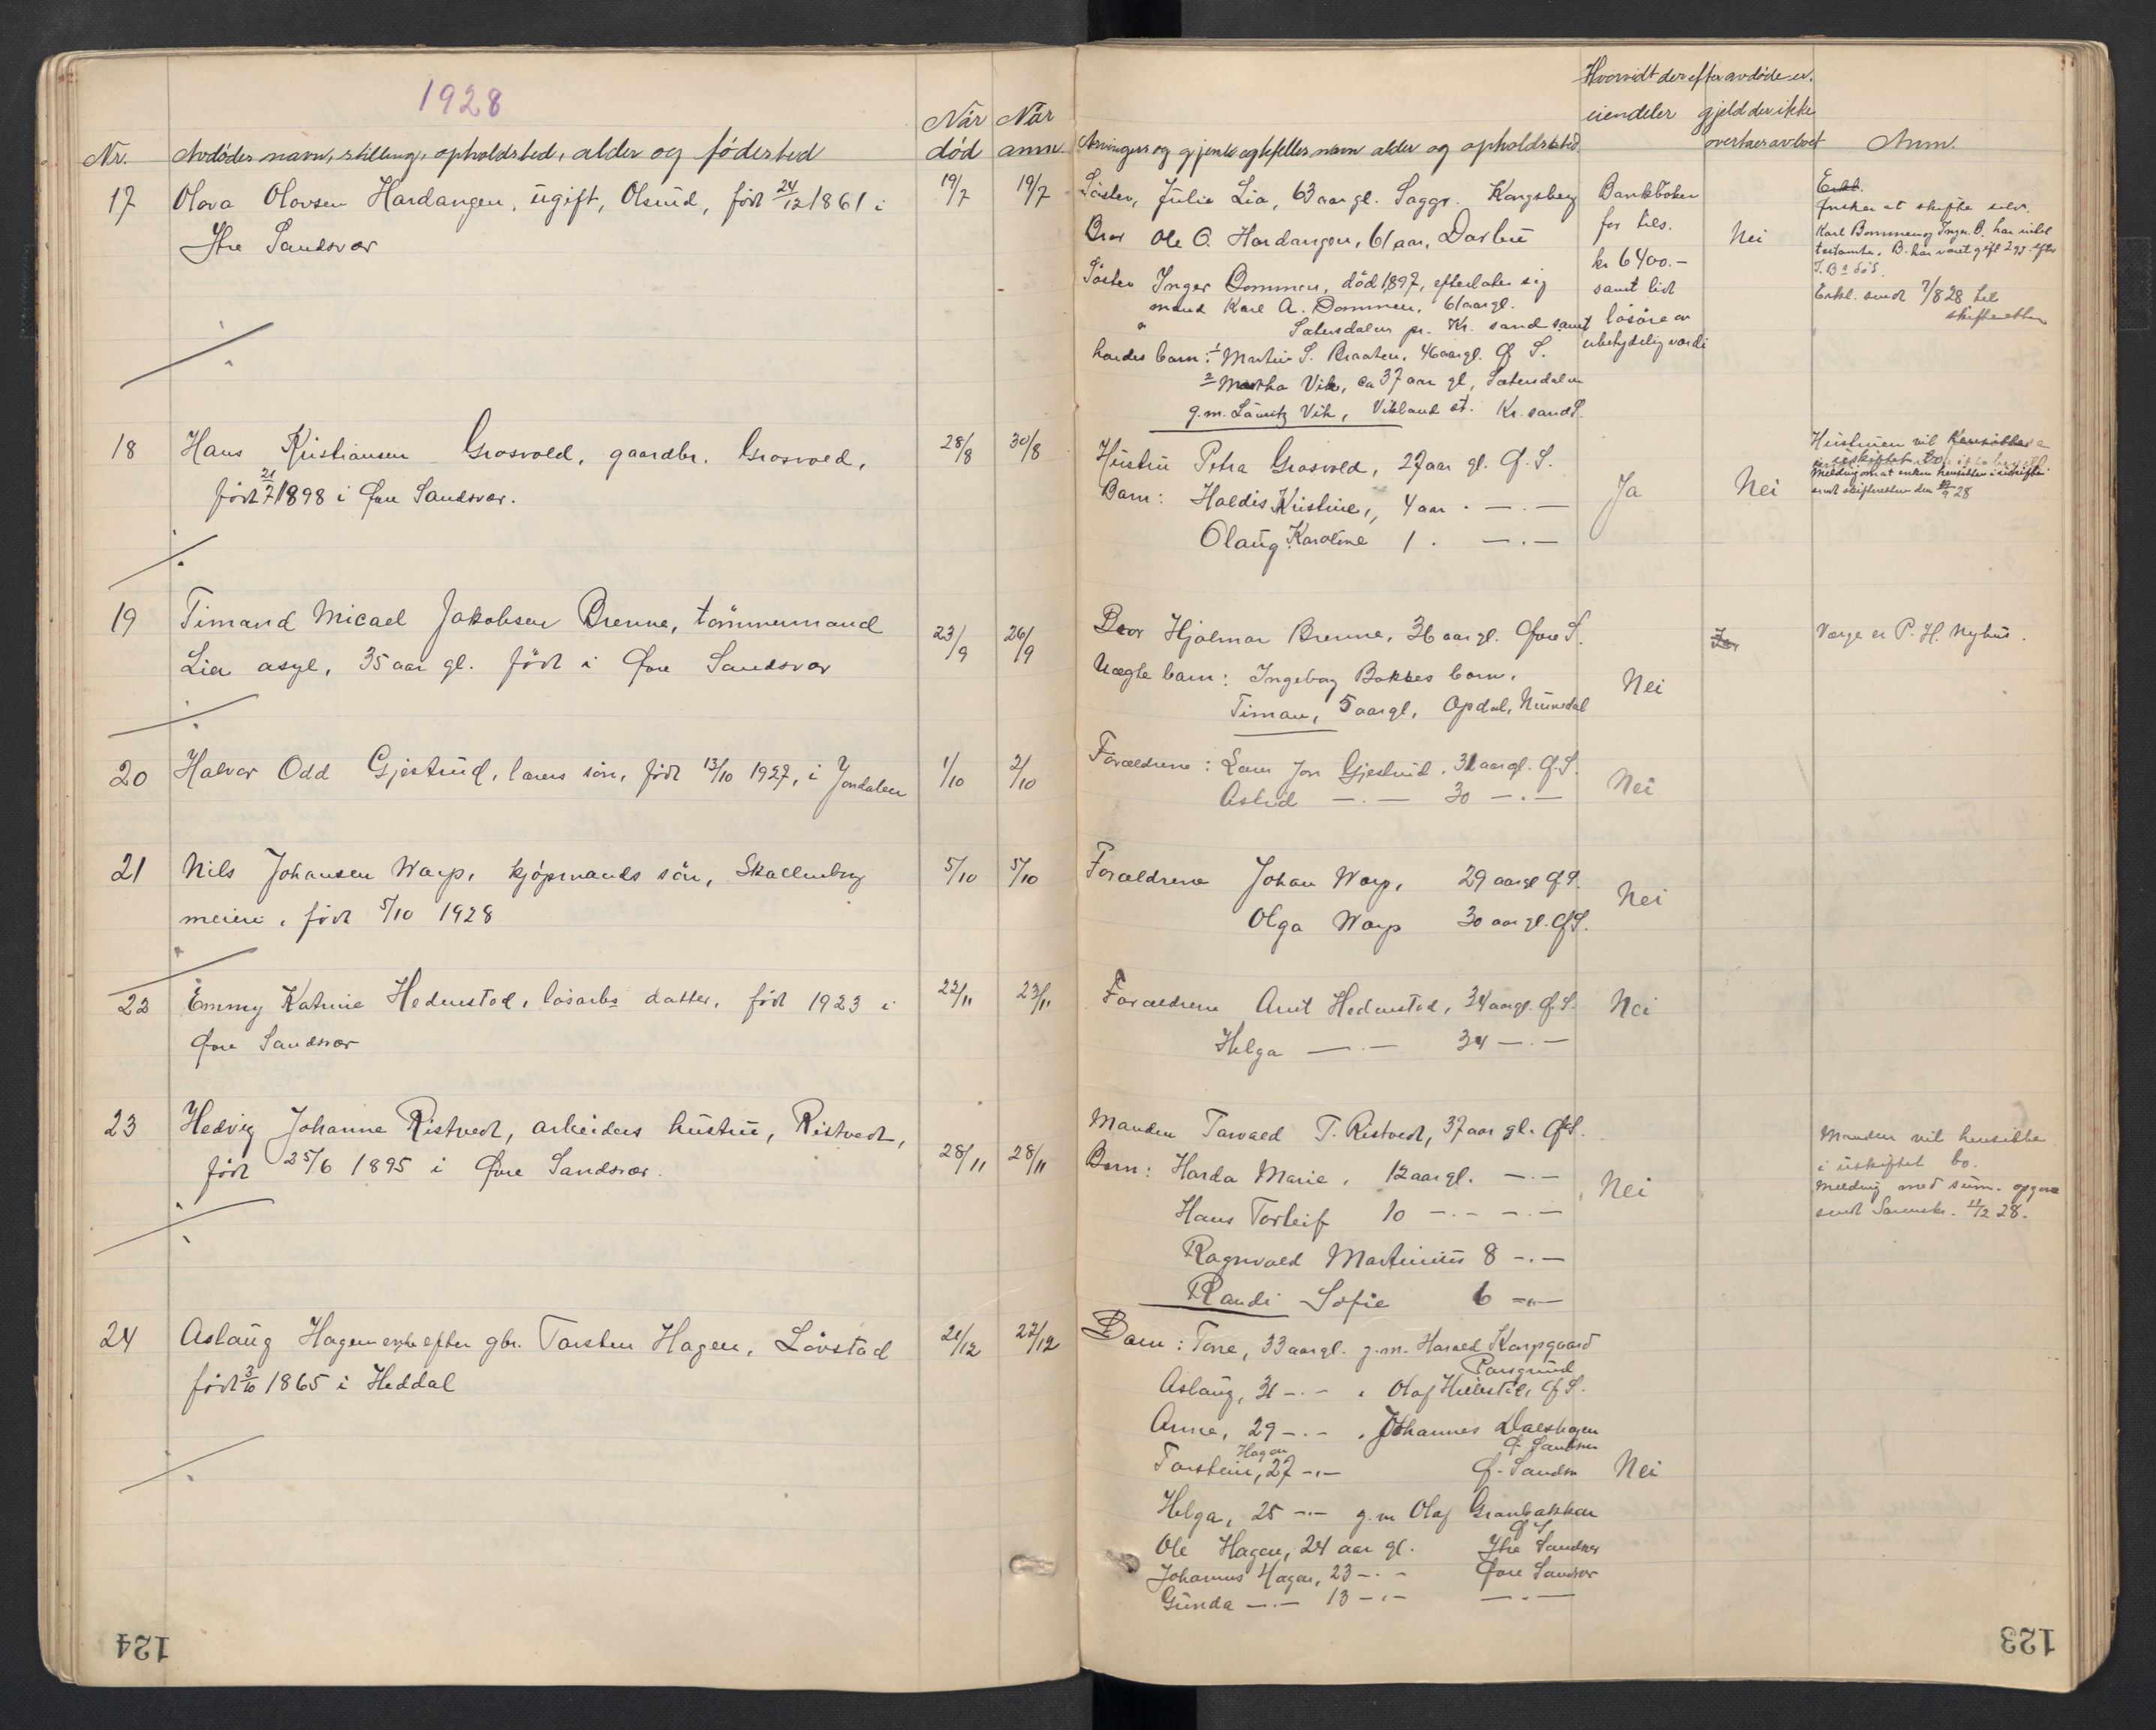 1928
Nr.
Avdödes navn, stilling, opholdsted, alder og födested
Når död
Når anm
Arvingers og gjenlev. egtefelles navn alder og opholdssted
Hvorvidt der efter avdöde er.
eiendeler
gjeld der ikke overtaes av boet
Anm.
17
Olava Olavsen Hardangen, ugift, Olsrud, född 24/12 1861 i
Ytre Sandsvær
19/7
19/7
Söster, Julie Lia, 63 aar gl. Saggr. Kongsberg
Bror Ole O. Hardangen, 61 aar, Darbu
Söster Inger Bommen, död 1897, efterlater sig
mand Karl A. Bommen, 61 aar gl.
Sætersdalen pr. Kr. sand samt
hendes barn: 1 Martin S. Braaten, 46 aar gl. Ö S.
2 Martha Vik, ca 37 aar gl, Sætersdalen
g.m. Lauritz Vik, Vikland st. Kr. sand S.
Bankboken
for tils.
kr 6400.-
samt lidt
lösöre av
ubetydelig værdi
Nei
Erkl.
Önsker at skifte selv.
Karl Bommen og Inger B. har intet
testamte. B. har været gift 2 gr. efter
I. Bs död.
Erkl. sendt 7/8 28 til
skifteretten
18
Hans Kristiansen Grosvold, gaardbr. Grosvold,
født 21/7 1898 i Øvre Sandsvær.
28/8
30/8
Hustru Petra Grosvold, 27 aar gl. Ö. S.
Barn: Haldis Kristine, 4 aar . — . —
Olaug Karoline 1 . — . —
Ja
Nei
Hustruen vil hensidde
i uskiftet bo
Melding om at enken hensidder i uskifte
sendt skifteretten den 12/9 28
19
Timand Micael Jakobsen Brenne, tömmermand
Lier asyl, 35 aar gl. född i Øvre Sandsvær
23/9
26/9
Bror Hjalmar Brenne, 36 aar gl. Øvre S.
Uægte barn: Ingeborg Bakkes barn,
Timan, 5 aar gl, Opdal, Numedal
Nei
Ja
Værge er P. H. Nyhus.
20
Halvor Odd Gjestrud, lærers sön, född 13/10 1927, i Jondalen
1/10
2/10
Forældrene: Lærer Jon Gjestrud, 31 aar gl. Ö. S.
Astrid — . — 30 — . —
Nei
21
Nils Johansen Warp, kjöpmands sön, Skollenborg
meieri, född 5/10 1928
5/10
5/10
Forældrene Johan Warp, 29 aar gl Ö S.
Olga Warp 30 aar gl. Ö S.
Nei
22
Emmy Katrine Hedenstad, lösarbs datter, född 1923 i
Øvre Sandsvær
22/11
23/11
Forældrene Arnt Hedenstad, 34 aar gl. Ö. S.
Helga — . — 34 — . —
Nei
23
Hedvig Johanne Ristvedt, arbeiders hustru, Ristvedt,
född 25/6 1895 i Øvre Sandsvær.
28/11
28/11
Manden Tarvald T. Ristvedt, 37 aar gl. Ö S.
Barn: Harda Marie, 12 aar gl. — . —
Hans Torleif 10 — . — — . —
Ragnvald Martinius 8 — . —
Randi Sofie 6 — „ —
Nei
Manden vil hensidde
i uskiftet bo.
Melding med sum. opgave
sendt Sorensk. 11/12 28.
24
Aslaug Hagen enke efter gbr. Torsten Hagen, Lövstad
född 3/10 1865 i Heddal
21/12
22/12
Barn: Tone, 33 aar gl. g.m. Harald Karpgaard
Porsgrund
Aslaug, 31 — . — „ Olaf Hillestad, Ö S.
Anna, 29 — . — „ Johannes Dalshagen
Ö. Sandsvær
Torstein Hagen, 27 — . — Ö. Sandsv
Helga, 25 — . — g.m Olaf Granbakken
Ö S
Ole Hagen, 24 aar gl. Ytre Sandsvær
Johannes Hagen, 23 — . — Øvre Sandsvær
Gunda — . — 13 — . — — . —
Nei
124
123